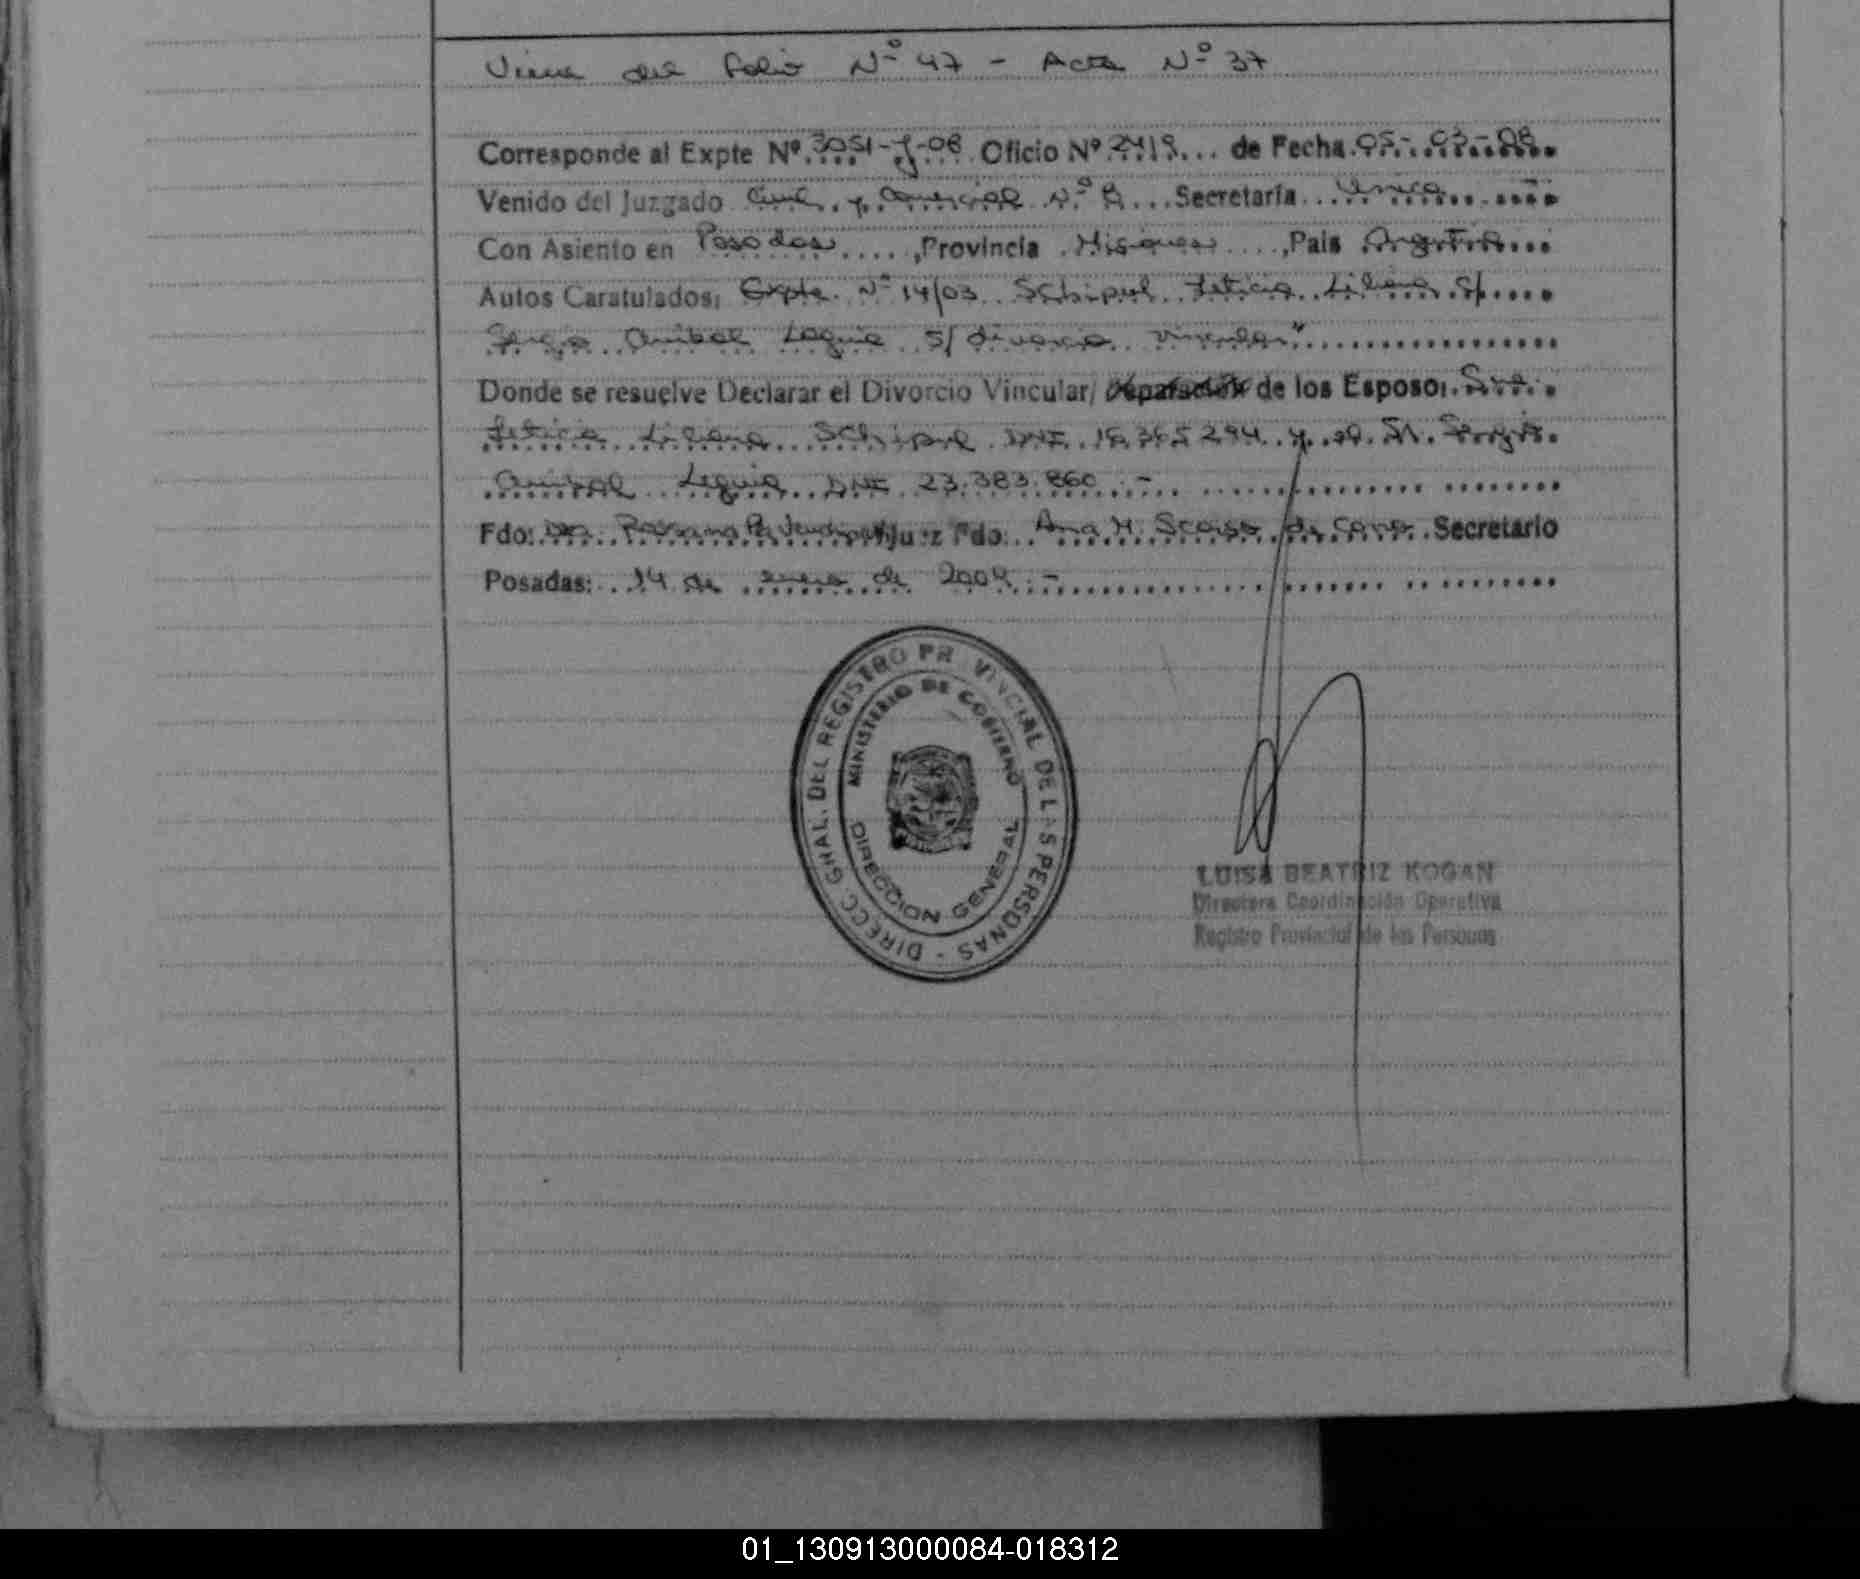 Viene del folio Nº 47 - Acta Nº 37
Corresponde al Expte Nº 3051-J-08 Oficio Nº 2419 de Fecha 05-03-08
Venido del Juzgado Civil y Comercial Nº Secretaría Unica
Con Asiento en Posadas, Provincia Misiones, País Argentina
Autos Caratulados: Expte Nº 14/03 Schipul Leticia Liliana c/
Sergio Anibal Leguia s/ divorcio vincular"
Donde se resuelve Declarar el Divorcio Vincular/ Separación de los Esposos: Sra.
Leticia Liliana Schipul DNI y el Sr. Sergio
Anibal Leguia DNI 23.383.860.-
Fdo: Dra. Juez Fdo: Ana H. de Cano Secretario
Posadas: 14 de enero de 2009.-
DIRECC. GRAL. DEL REGISTRO PROVINCIAL DE LAS PERSONAS -
MINISTERIO DE GOBIERNO
DIRECCION GENERAL
LUISA BEATRIZ KOGAN
Directora Coordinación Operativa
Registro Provincial de las Personas
01_130913000084-018312